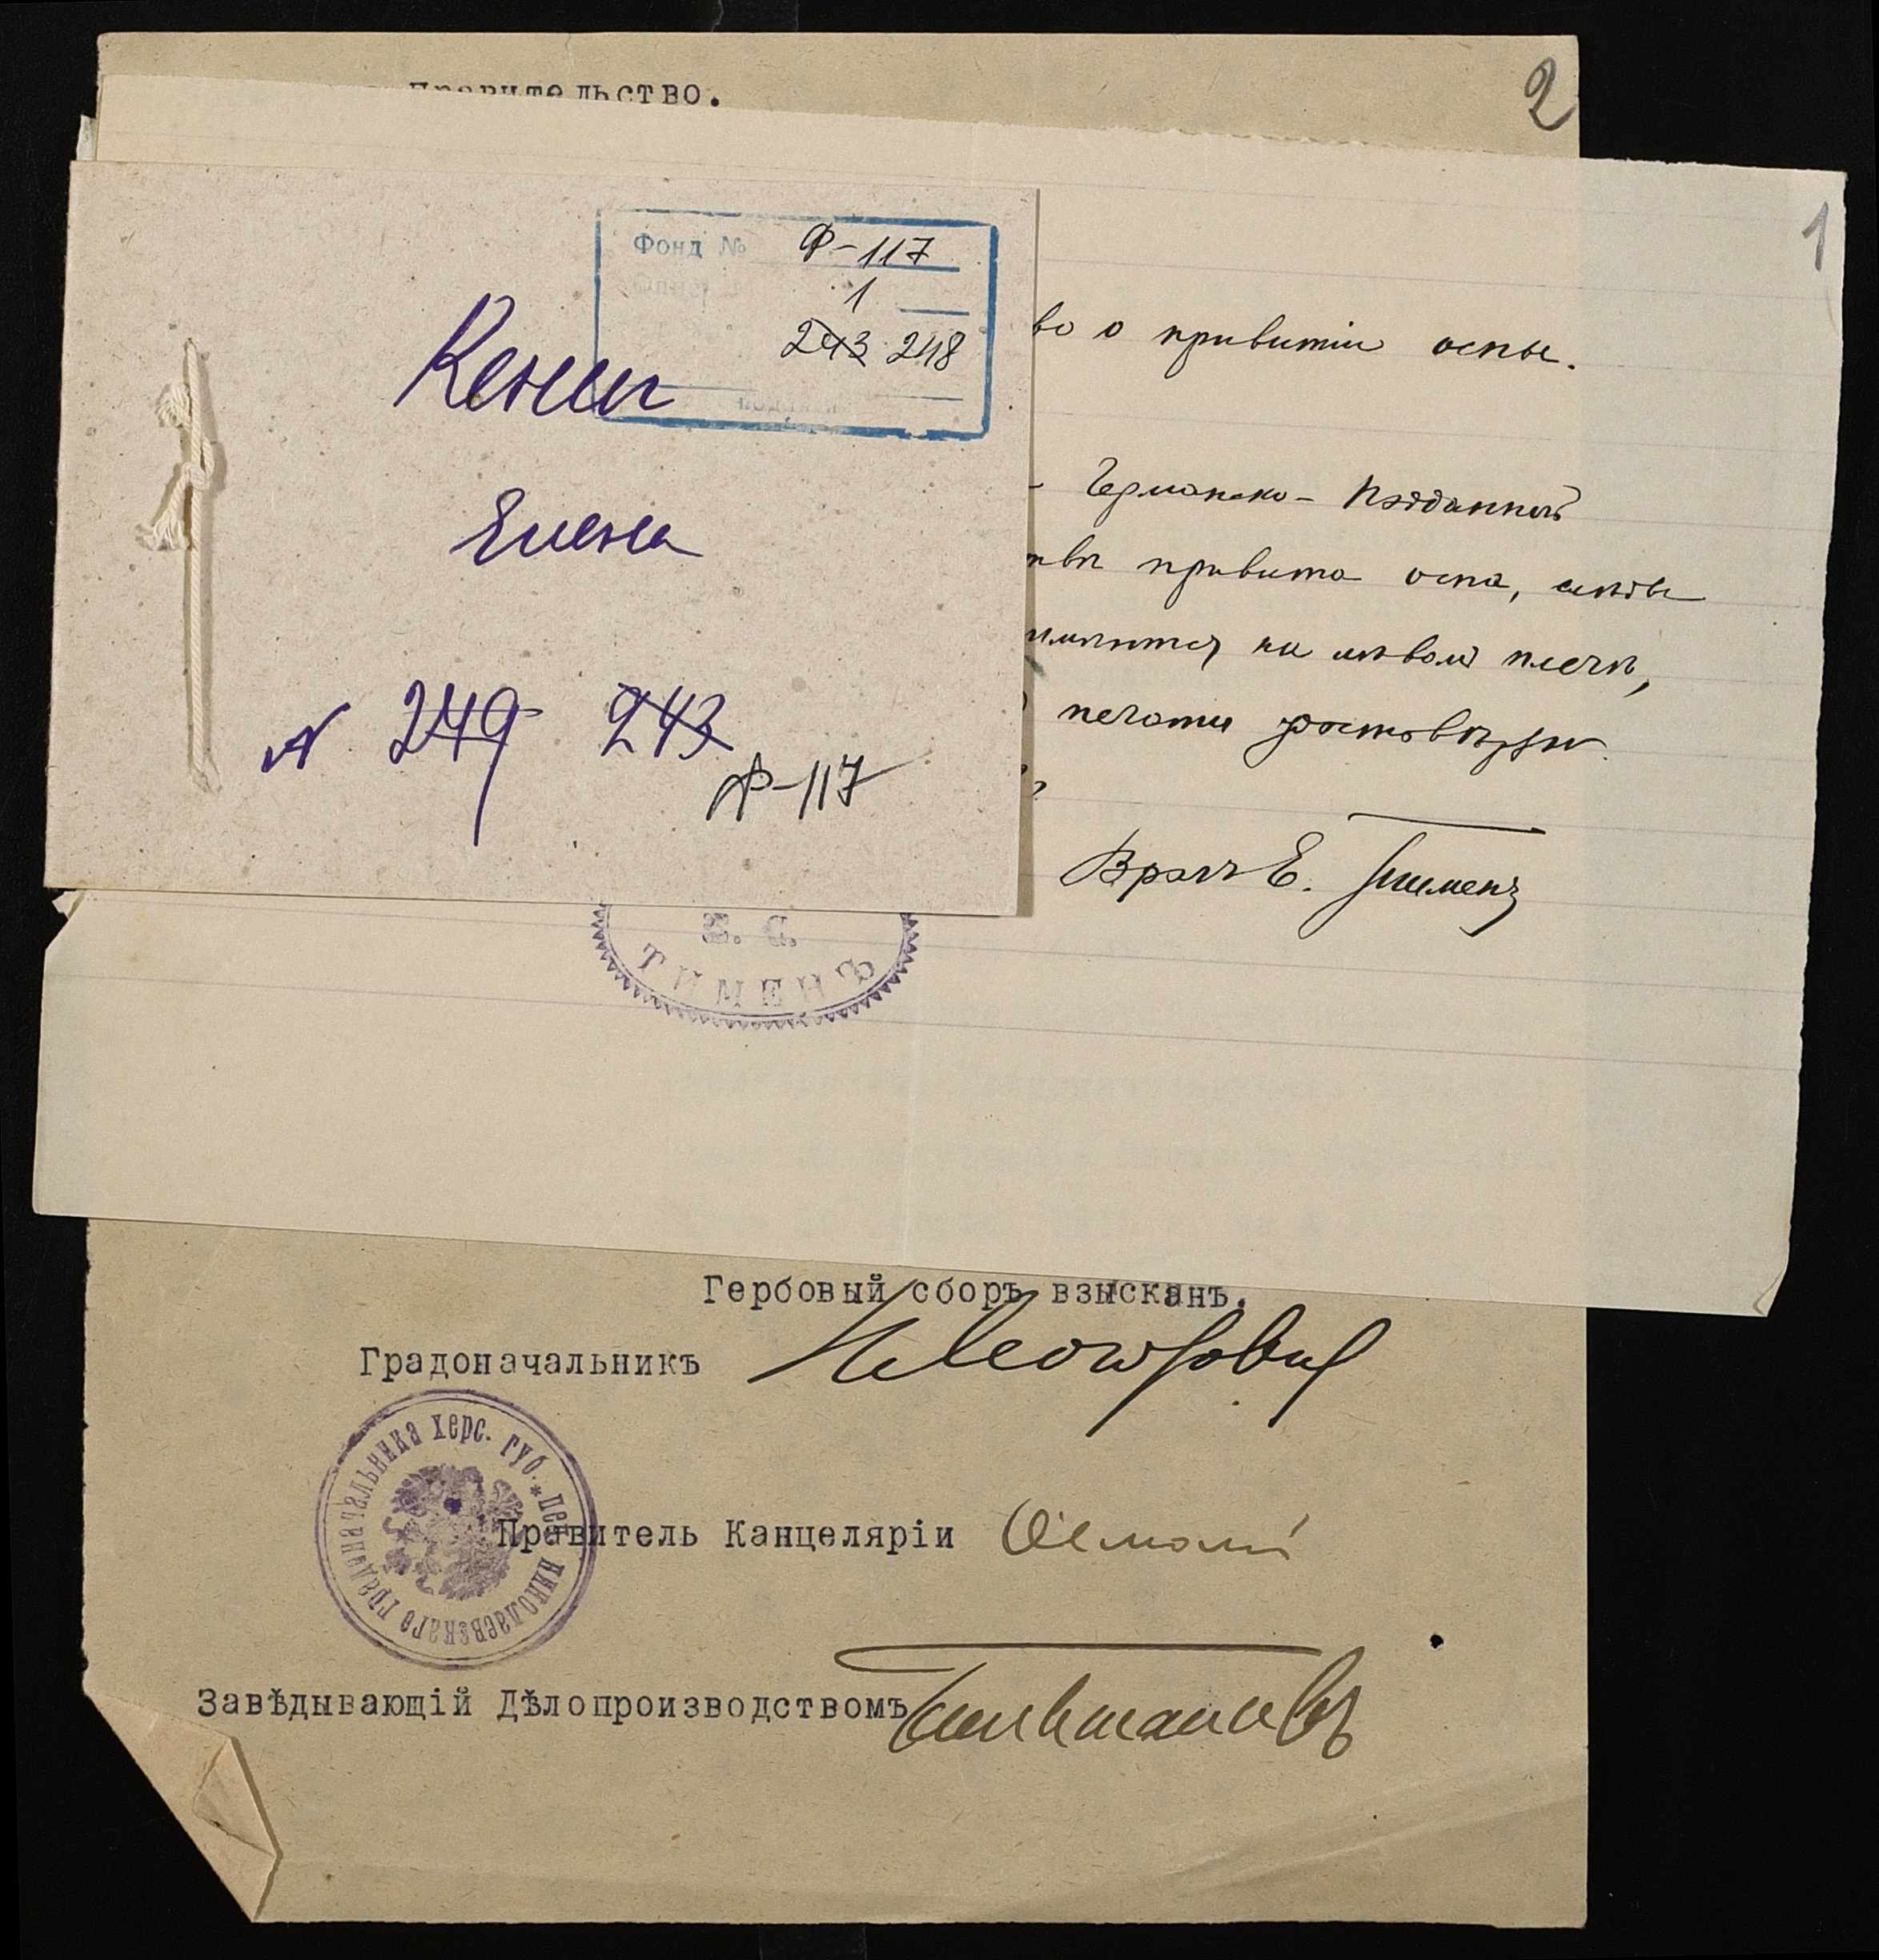 Правительство.
2
1
Фонд № Ф-117
1
243 248
Кениг
Елена
N 249 243
Ф-117
во о привитіи оспы.
Германско-Подданной
привита оспа, слѣды
имѣются на лѣвомъ плечѣ,
печати
Врачъ Е. Тименъ
Е. С.
ТИМЕНЪ
Гербовый сборъ взысканъ.
Градоначальникъ
николаевскаго градоначальника херс. губ. * печ.
Правитель Канцеляріи
Завѣдывающій Дѣлопроизводствомъ